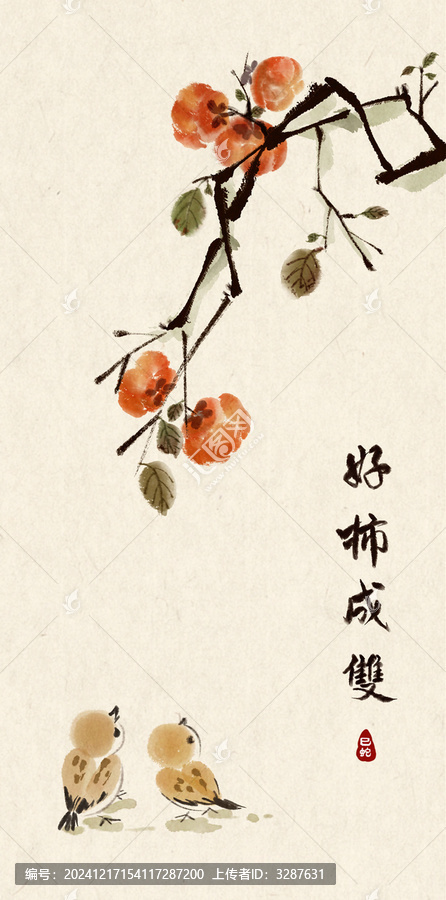 好柿成雙
巳蛇
编号：20241217154117287200 上传者ID：3287631